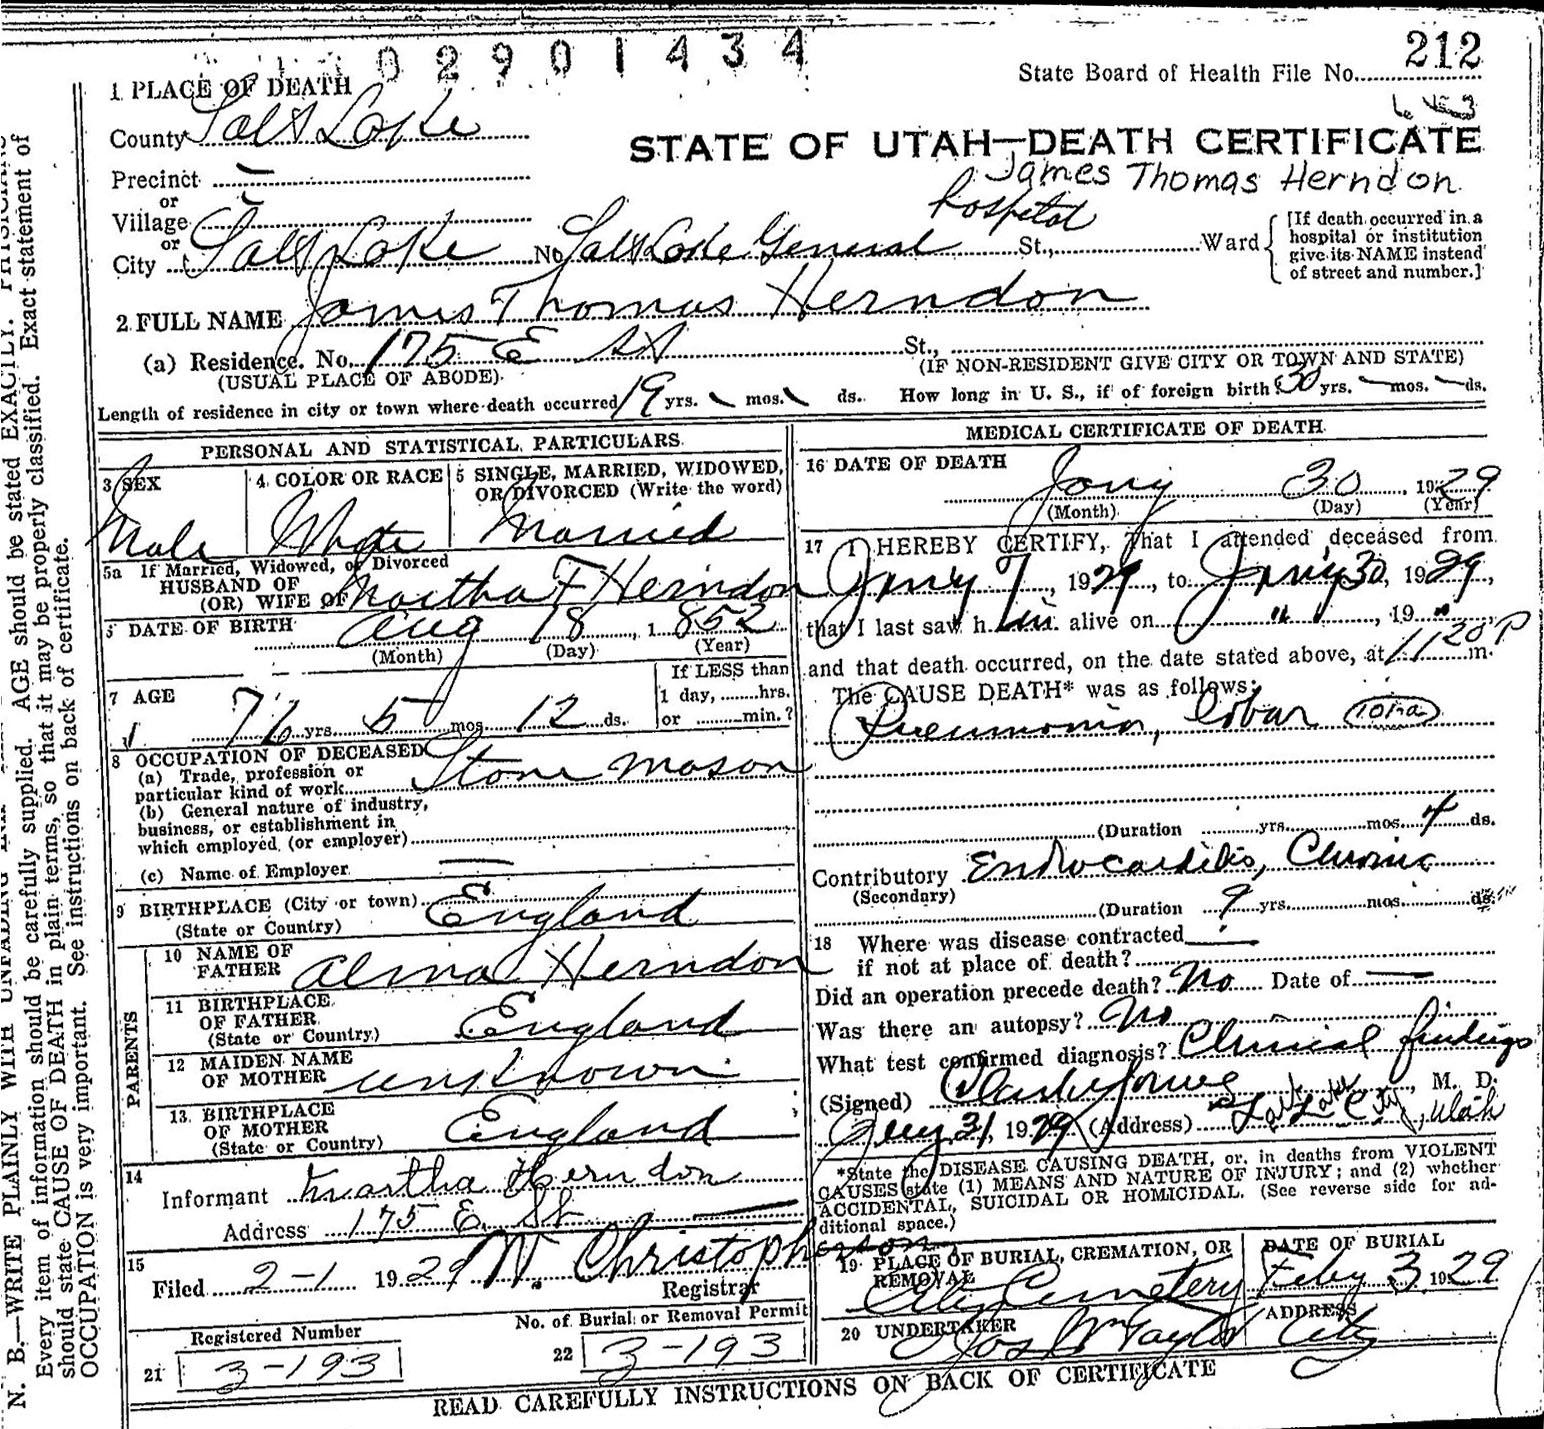 02901434
212
State Board of Health File No.
1 PLACE OF DEATH
County Salt Lake
STATE OF UTAH—DEATH CERTIFICATE
James Thomas Herndon
Precinct
or
Village
or
City Salt Lake No. Salt Lake General hospital St., Ward
[If death occurred in a
hospital or institution
give its NAME instead
of street and number.]
2 FULL NAME James Thomas Herndon
(a) Residence. No. 175 E St St.,
(USUAL PLACE OF ABODE) (IF NON-RESIDENT GIVE CITY OR TOWN AND STATE)
Length of residence in city or town where death occurred 19 yrs. mos. ds. How long in U. S., if of foreign birth? 30 yrs. mos. ds.
PERSONAL AND STATISTICAL PARTICULARS
3 SEX
Male
4 COLOR OR RACE
White
5 SINGLE, MARRIED, WIDOWED,
OR DIVORCED (Write the word)
Married
5a If Married, Widowed, or Divorced
HUSBAND OF
(OR) WIFE OF Martha F Herndon
DATE OF BIRTH Aug 18, 1852
(Month) (Day) (Year)
7 AGE
76 yrs. 5 mos. 12 ds.
If LESS than
1 day, hrs.
or min.?
8 OCCUPATION OF DECEASED
(a) Trade, profession or
particular kind of work Stone mason
(b) General nature of industry,
business, or establishment in
which employed (or employer)
(c) Name of Employer
9 BIRTHPLACE (City or town) England
(State or Country)
PARENTS
10 NAME OF
FATHER Alma Herndon
11 BIRTHPLACE
OF FATHER England
(State or Country)
12 MAIDEN NAME
OF MOTHER unknown
13 BIRTHPLACE
OF MOTHER England
(State or Country)
14
Informant Martha Herndon
Address 175 E. St
15
Filed 2-1 1929 W. Christopherson
Registrar
Registered Number
21 3-193
No. of Burial or Removal Permit
22 3-193
MEDICAL CERTIFICATE OF DEATH
16 DATE OF DEATH
Jany 30, 1929
(Month) (Day) (Year)
17 I HEREBY CERTIFY, That I attended deceased from
Jany 7, 1929, to Jany 30, 1929,
that I last saw him alive on " ", 19"
and that death occurred, on the date stated above, at 11 20 P m.
The CAUSE DEATH* was as follows:
Pneumonia, lobar 101a
(Duration yrs. mos. 4 ds.
Contributory Endocarditis, Chronic
(Secondary)
(Duration 9 yrs. mos. ds.
18 Where was disease contracted
if not at place of death?
Did an operation precede death? No Date of
Was there an autopsy? No
What test confirmed diagnosis? Clinical findings
(Signed) M. D.
Jany 31, 1929 (Address) Salt Lake City, Utah
*State the DISEASE CAUSING DEATH, or, in deaths from VIOLENT
CAUSES state (1) MEANS AND NATURE OF INJURY; and (2) whether
ACCIDENTAL, SUICIDAL OR HOMICIDAL. (See reverse side for ad-
ditional space.)
19 PLACE OF BURIAL, CREMATION, OR
REMOVAL
City Cemetery
DATE OF BURIAL
Feby 3 1929
20 UNDERTAKER
Jos Wm Taylor
ADDRESS
City
READ CAREFULLY INSTRUCTIONS ON BACK OF CERTIFICATE
N. B.—WRITE PLAINLY WITH UNFADING INK
Every item of information should be carefully supplied. AGE should be stated EXACTLY. PHYSICIANS
should state CAUSE OF DEATH in plain terms, so that it may be properly classified. Exact statement of
OCCUPATION is very important. See instructions on back of certificate.